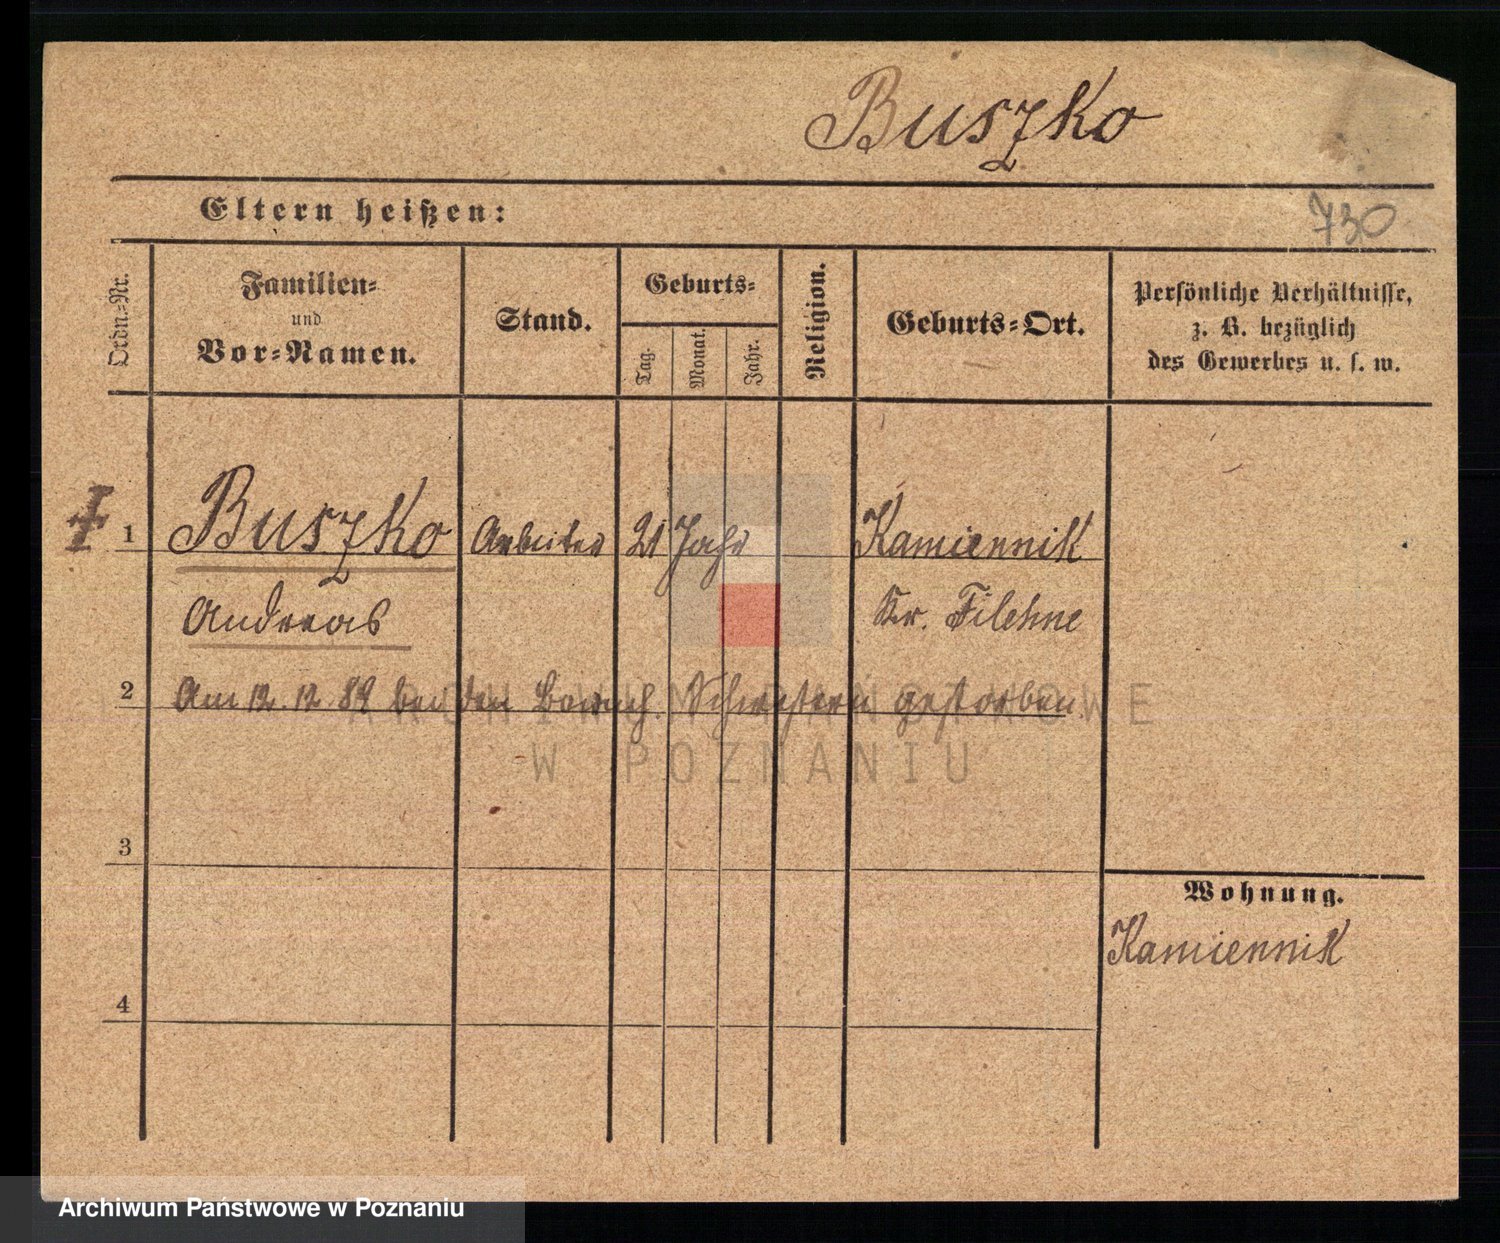 Buszko
Eltern heißen:
730
Ordn.-Nr.
Familien-
und
Vor-Namen.
Stand.
Geburts-
Tag.
Monat.
Jahr.
Religion.
Geburts-Ort.
Persönliche Verhältnisse,
z. B. bezüglich
des Gewerbes u. s. w.
1 Buszko Arbeiter 21 Jahr Kamiennik
Andreas Kr. Filehne
2 Am 12.12.89 bei den Barmh. Schwestern gestorben.
ARCHIWUM PAŃSTWOWE
W POZNANIU
3
Wohnung.
Kamiennik
4
Archiwum Państwowe w Poznaniu